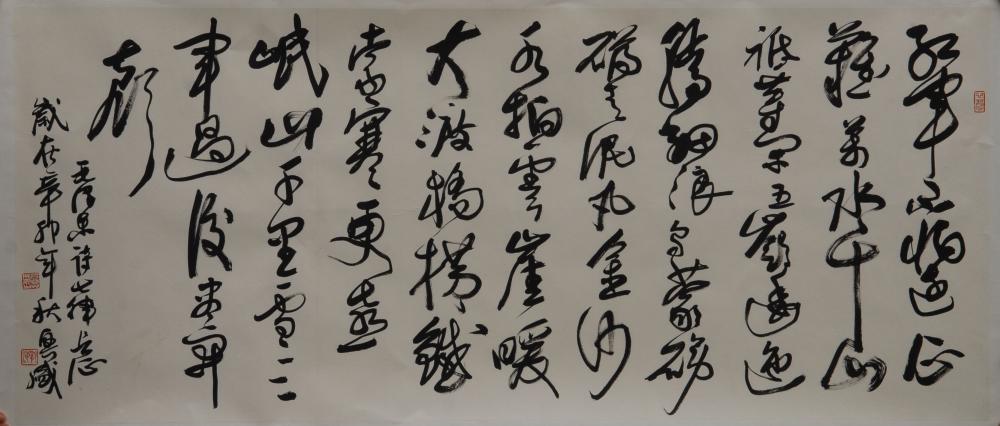 紅軍不怕遠征
難萬水千山
祇等闲五嶺逶迤
騰細浪烏蒙磅
礴走泥丸金沙
水拍雲崖暖
大渡橋横鐵
索寒更喜
岷山千里雪三
軍過後盡開
顏
毛澤東詩七律長征
歲在辛卯年秋